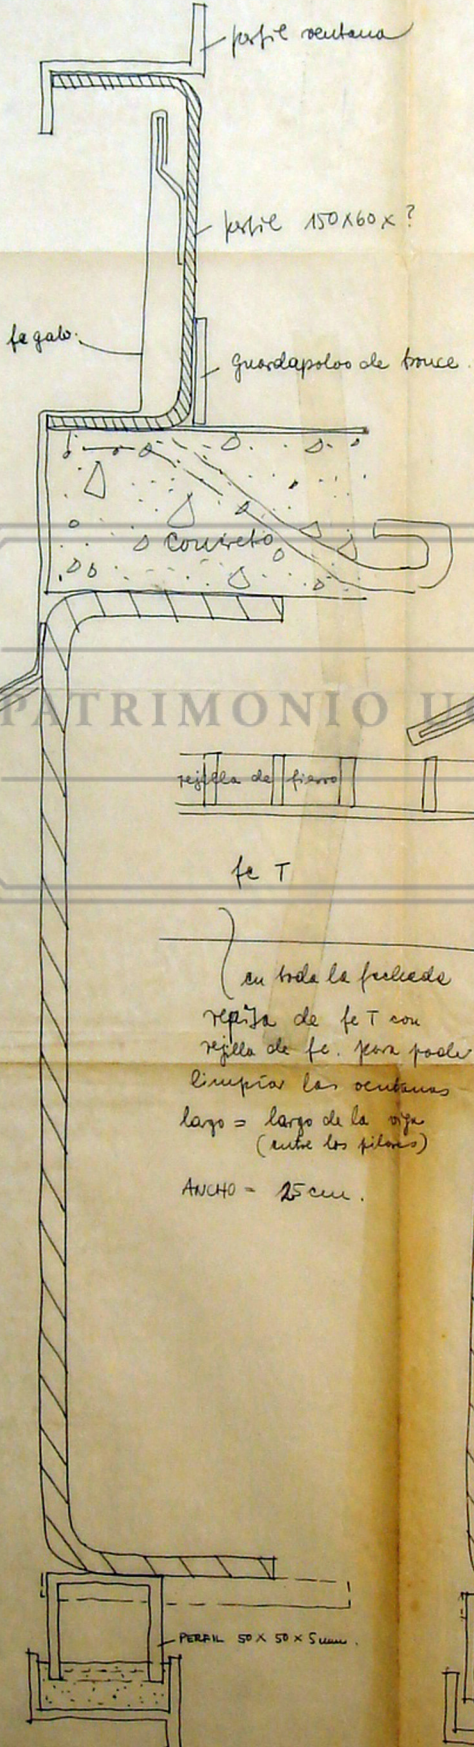 perfil ventana
perfil 150x60x?
fe galv.
guardapolvo de bronce.
concreto
PATRIMONIO
rejilla de fierro
fe T
en toda la fachada
repisa de fe T con
rejilla de fe. para poder
limpiar las ventanas
largo = largo de la viga
(entre los pilares)
ANCHO = 25 cm.
PERFIL 50 x 50 x 5 mm.